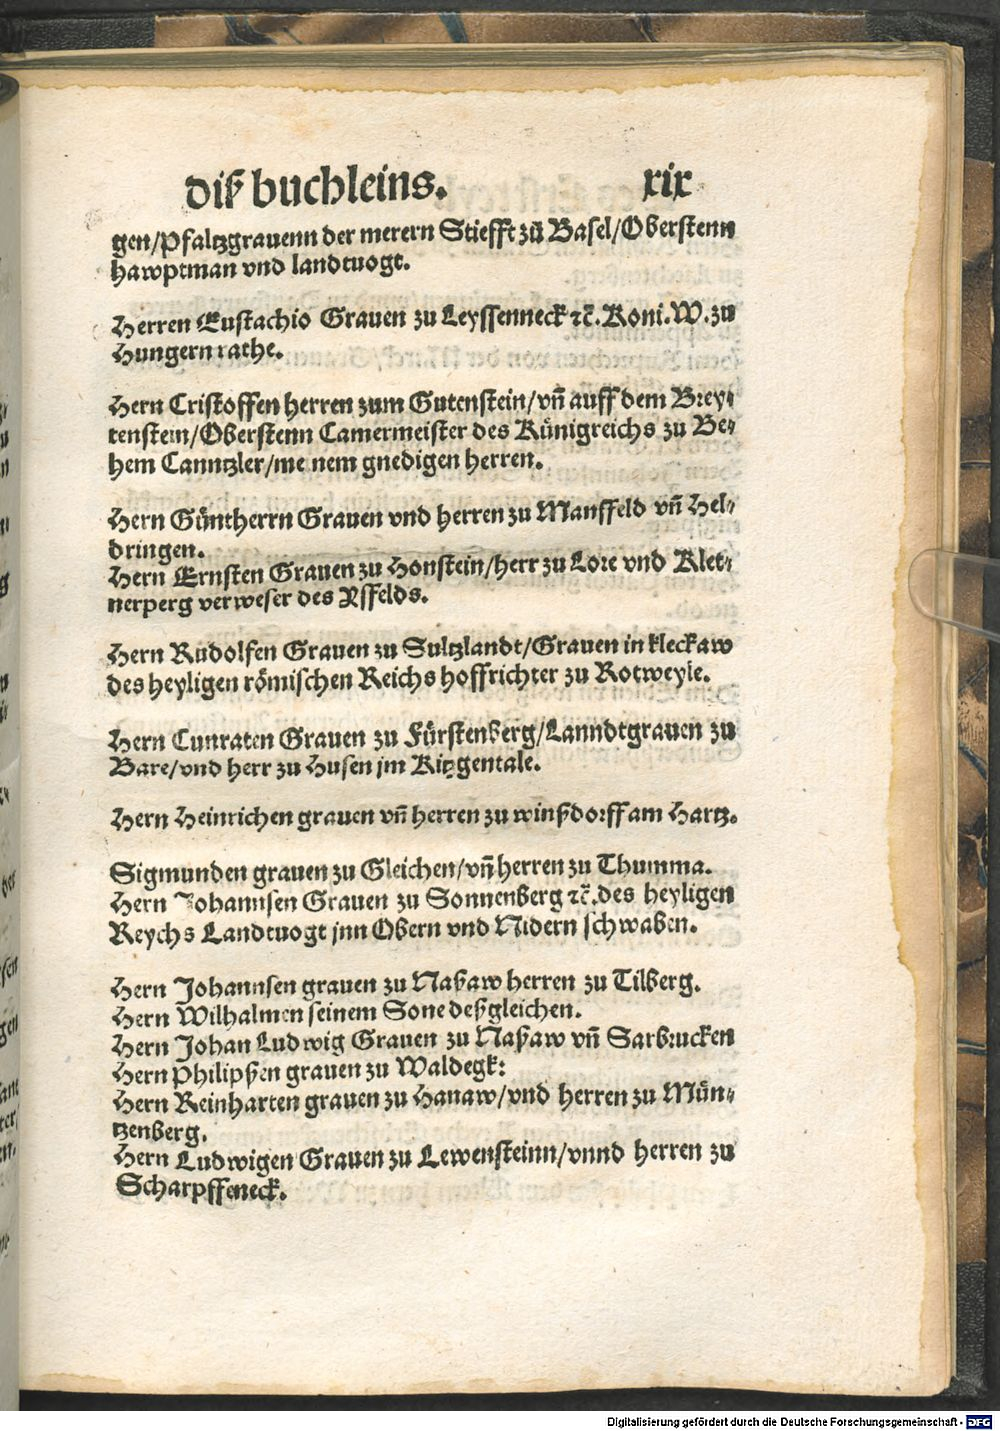 diß buchleins. xix
gen/Pfaltzgrauenn der merern Stiefft zů Basel/Oberstenn
hawptman vnd landtuogt.
Herren Eustachio Grauen zu Leyssenneck ꝛc̄. Koni. W. zu
Hungern rathe.
Hern Cristoffen herren zum Gutenstein/vn̄ auff dem Brey⸗
tenstein/Oberstenn Camermeister des Künigreichs zu Be⸗
hem Canntzler/me nem gnedigen herren.
Hern Güntherrn Grauen vnd herren zu Manffeld vn̄ Hel⸗
dringen.
Hern Ernsten Grauen zu Honstein/herr zu Lore vnd Klet⸗
nerperg verweser des Ysfelds.
Hern Růdolfen Grauen zu Sultzlandt/Grauen in kleckaw
des heyligen römischen Reichs hoffrichter zu Rotweyle.
Hern Cunraten Grauen zu Fürstenberg/Lanndtgrauen zu
Bare/vnd herr zu Husen jm Kitzgentale.
Hern Heinrichen grauen vn̄ herren zu winßdorff am Hartz.
Sigmunden grauen zu Gleichen/vn̄ herren zu Thumma.
Hern Johannsen Grauen zu Sonnenberg ꝛc̄. des heyligen
Reychs Landtuogt jnn Obern vnd Nidern schwaben.
Hern Johannsen grauen zu Naßaw herren zu Tilberg.
Hern Wilhalmen seinem Sone deßgleichen.
Hern Johan Ludwig Grauen zu Naßaw vn̄ Sarbrucken
Hern Philipßen grauen zu Waldegk:
Hern Reinharten grauen zu Hanaw/vnd herren zu Mün⸗
tzenberg.
Hern Ludwigen Grauen zu Lewensteinn/vnnd herren zu
Scharpffeneck.
Digitalisierung gefördert durch die Deutsche Forschungsgemeinschaft - DFG